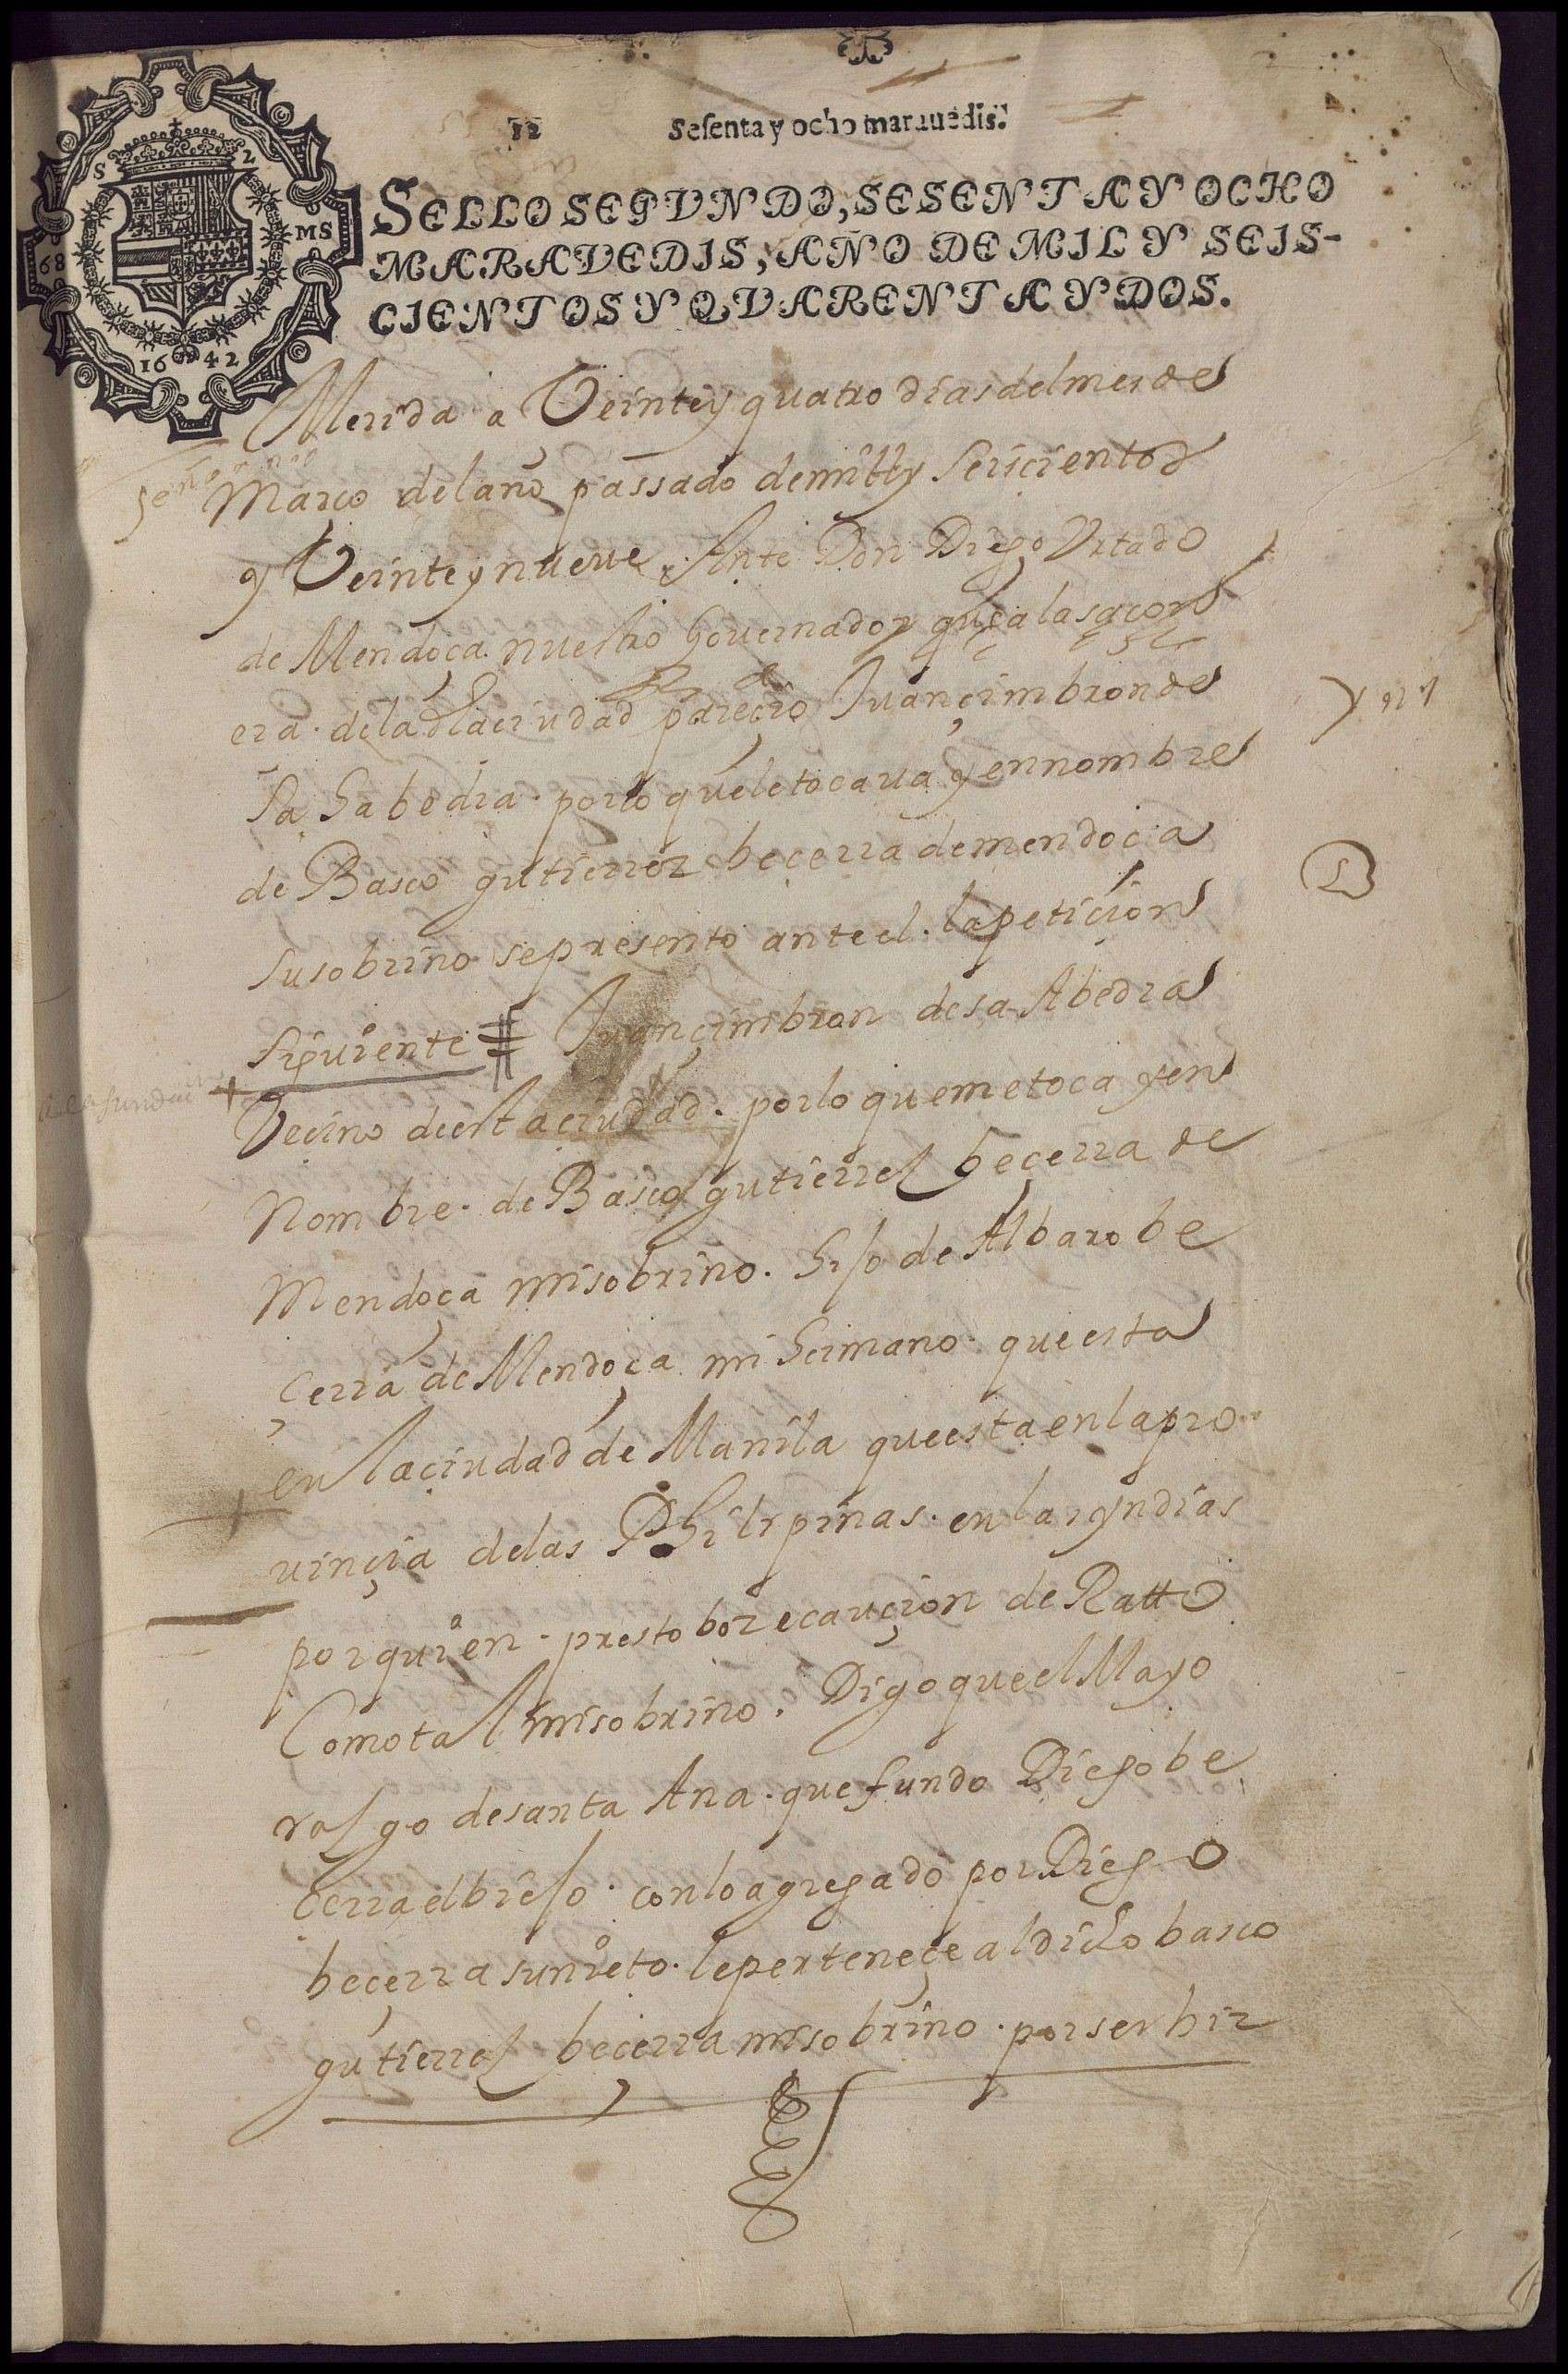 Sesenta y ocho marauedis.
SELLO SEGVNDO, SESENTA Y OCHO
MARAVEDIS, AÑO DE MIL Y SEIS-
CIENTOS Y QVARENTA Y DOS.
S 2
68 MS
1642
Merida a Veinte y quatro dias del mes de
Março del año passado de mill y seiscientos
y Veinte y nueve Ante Don Diego Vrtado
de Mendoça nuestro Gouernador que a la saçon
era de la dha ciudad pareçio Juan çimbron de
Sa Sabedra por lo que le tocaua y en nombre
de Basco gutierrez beçerra de mendoça
su sobrino se presento ante el la petiçion
siguiente Juan çimbron de sa Abedra
Veçino de esta ciudad por lo que me toca y en
Nombre de Basco gutierrez beçerra de
Mendoça mi sobrino hijo de Albaro be
çerra de Mendoça mi hermano que esta
en la çiudad de Manila que esta en la pro
uinçia de las Philipinas en las yndias
por quien presto boz e cauçion de Ratto
Como tal mi sobrino. Digo que el Mayo
razgo de santa Ana que fundo Diego be
cerra el biejo con lo agregado por Diego
beçerra su nieto le perteneçe al dicho basco
gutierrez beçerra mi sobrino por ser hix